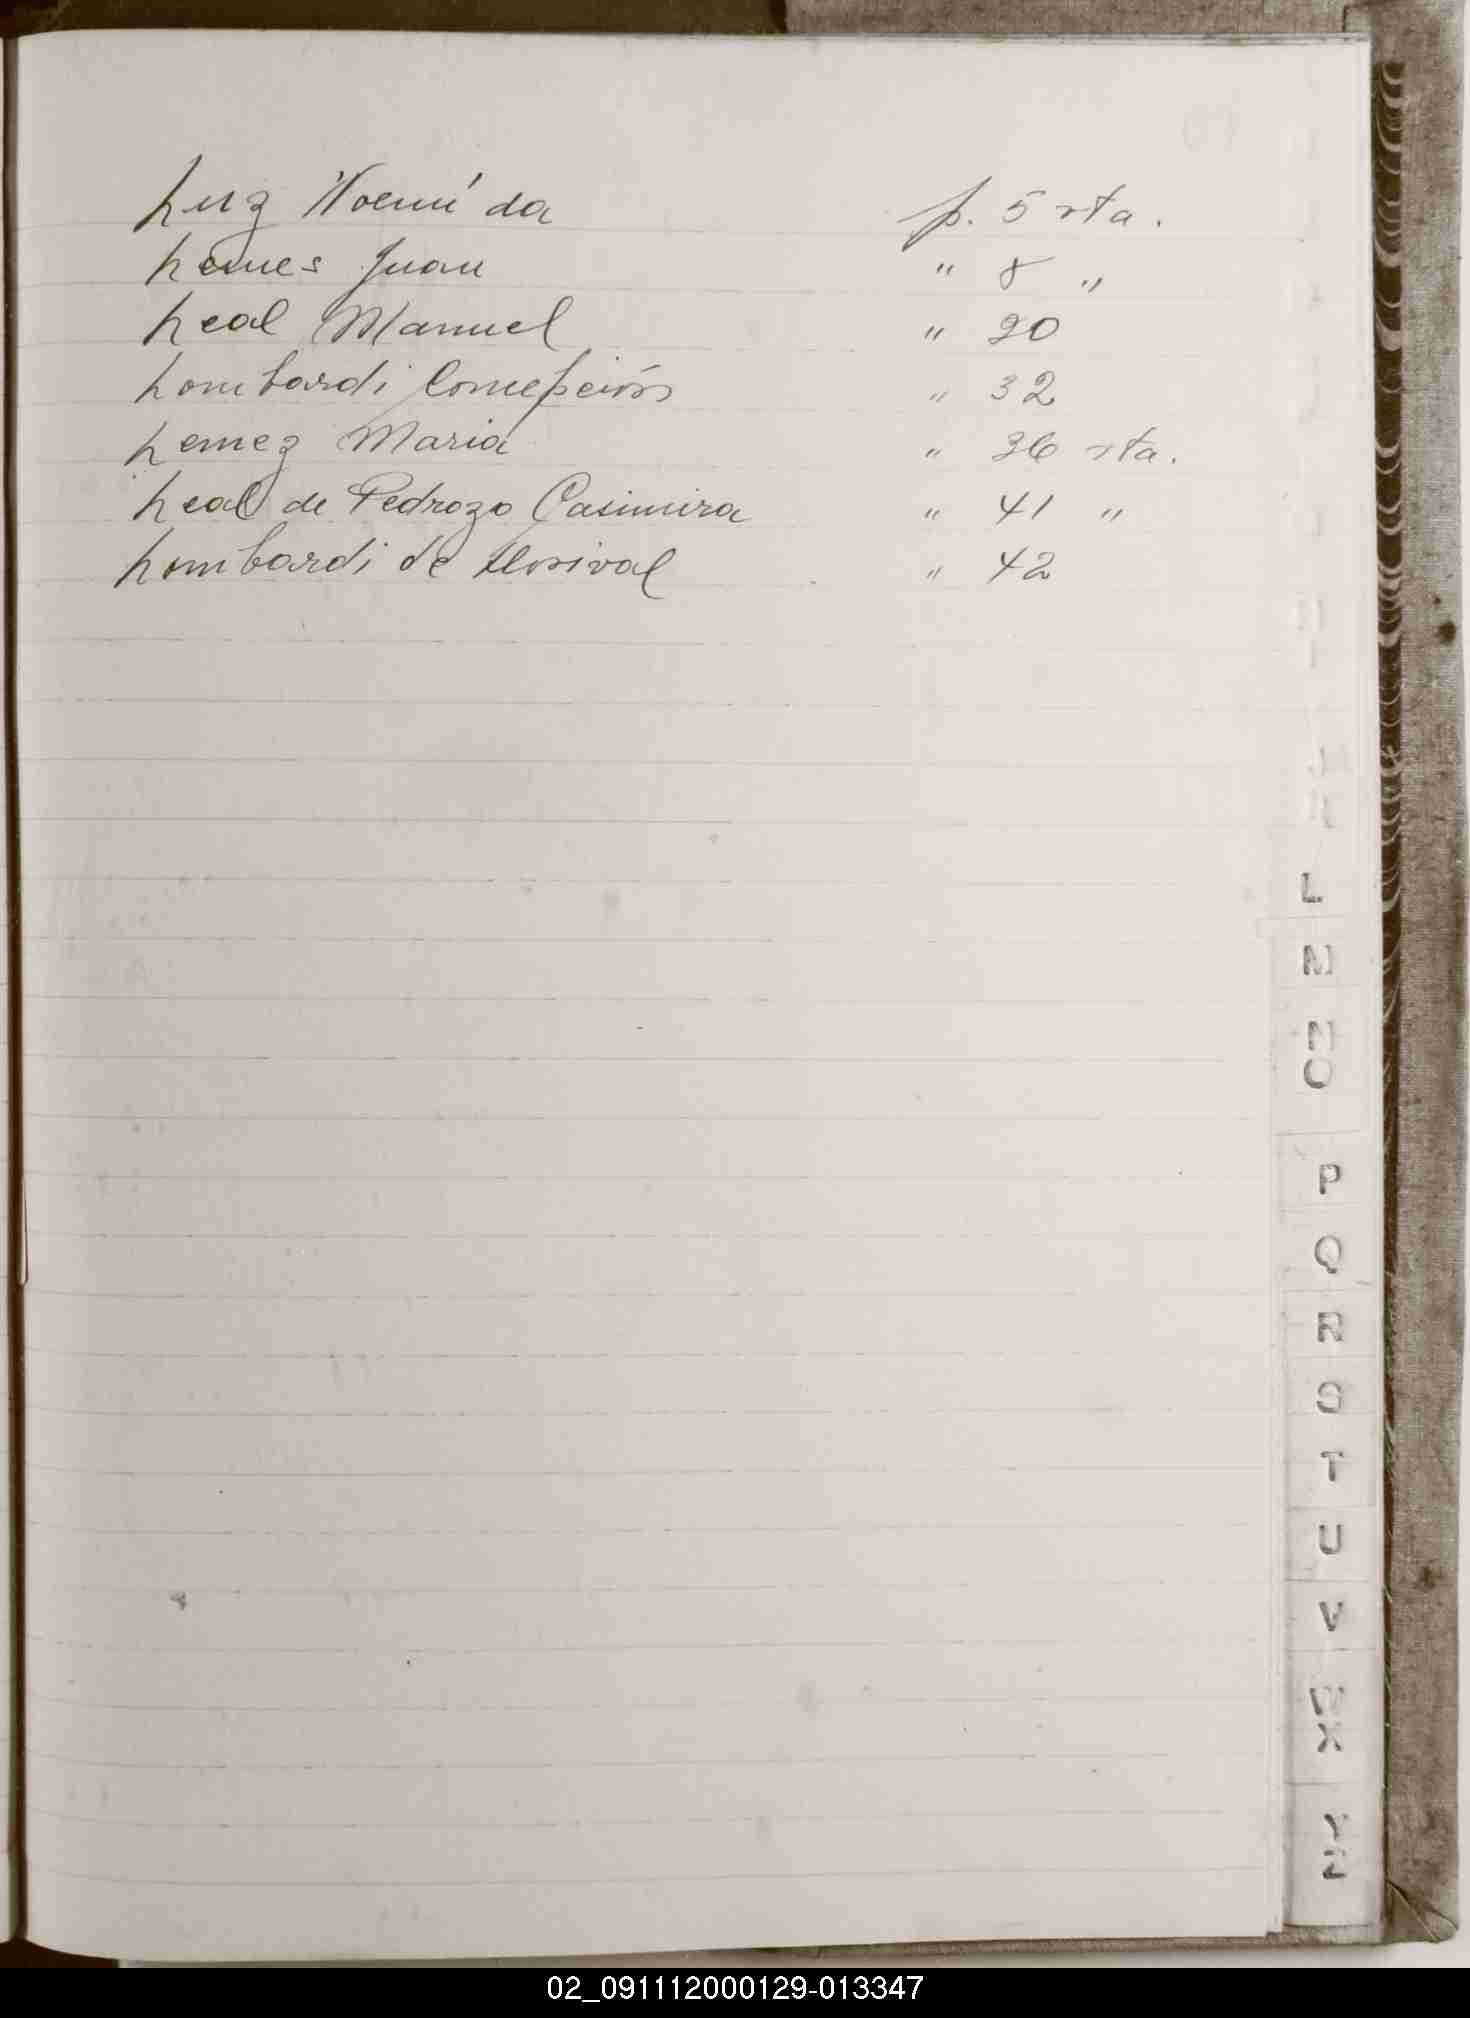 Luz Noemí da p. 5 vta.
Lemes Juan " 8 "
Leal Manuel " 20
Lombardi Concepción " 32
Lemez Maria " 36 vta.
Leal de Pedrozo Casimira " 41 "
Lombardi de Dorival " 42
L
M
N
O
P
Q
R
S
T
U
V
W
X
Y
Z
02_091112000129-013347